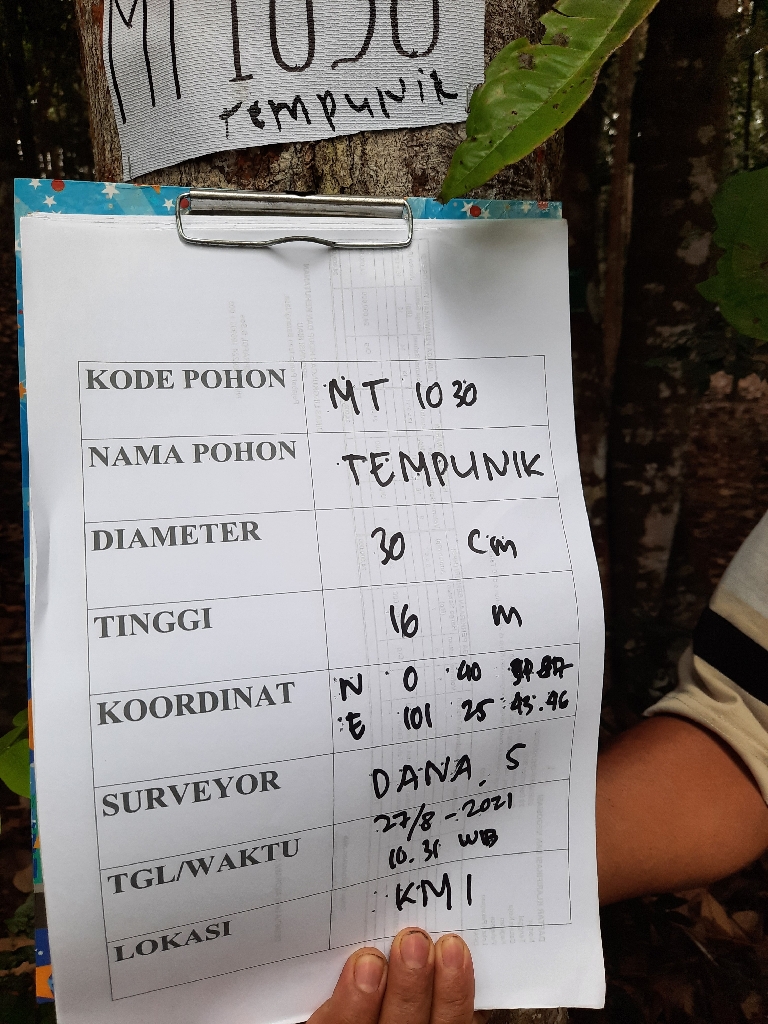 MT 1030
TEMPUNIK
KODE POHON MT 1030
NAMA POHON TEMPUNIK
DIAMETER 30 Cm
TINGGI 16 m
KOORDINAT N 0 40
E 101 25 45.46
SURVEYOR DANA. S
TGL/WAKTU 27/8-2021
10.31 WIB
LOKASI KM 1